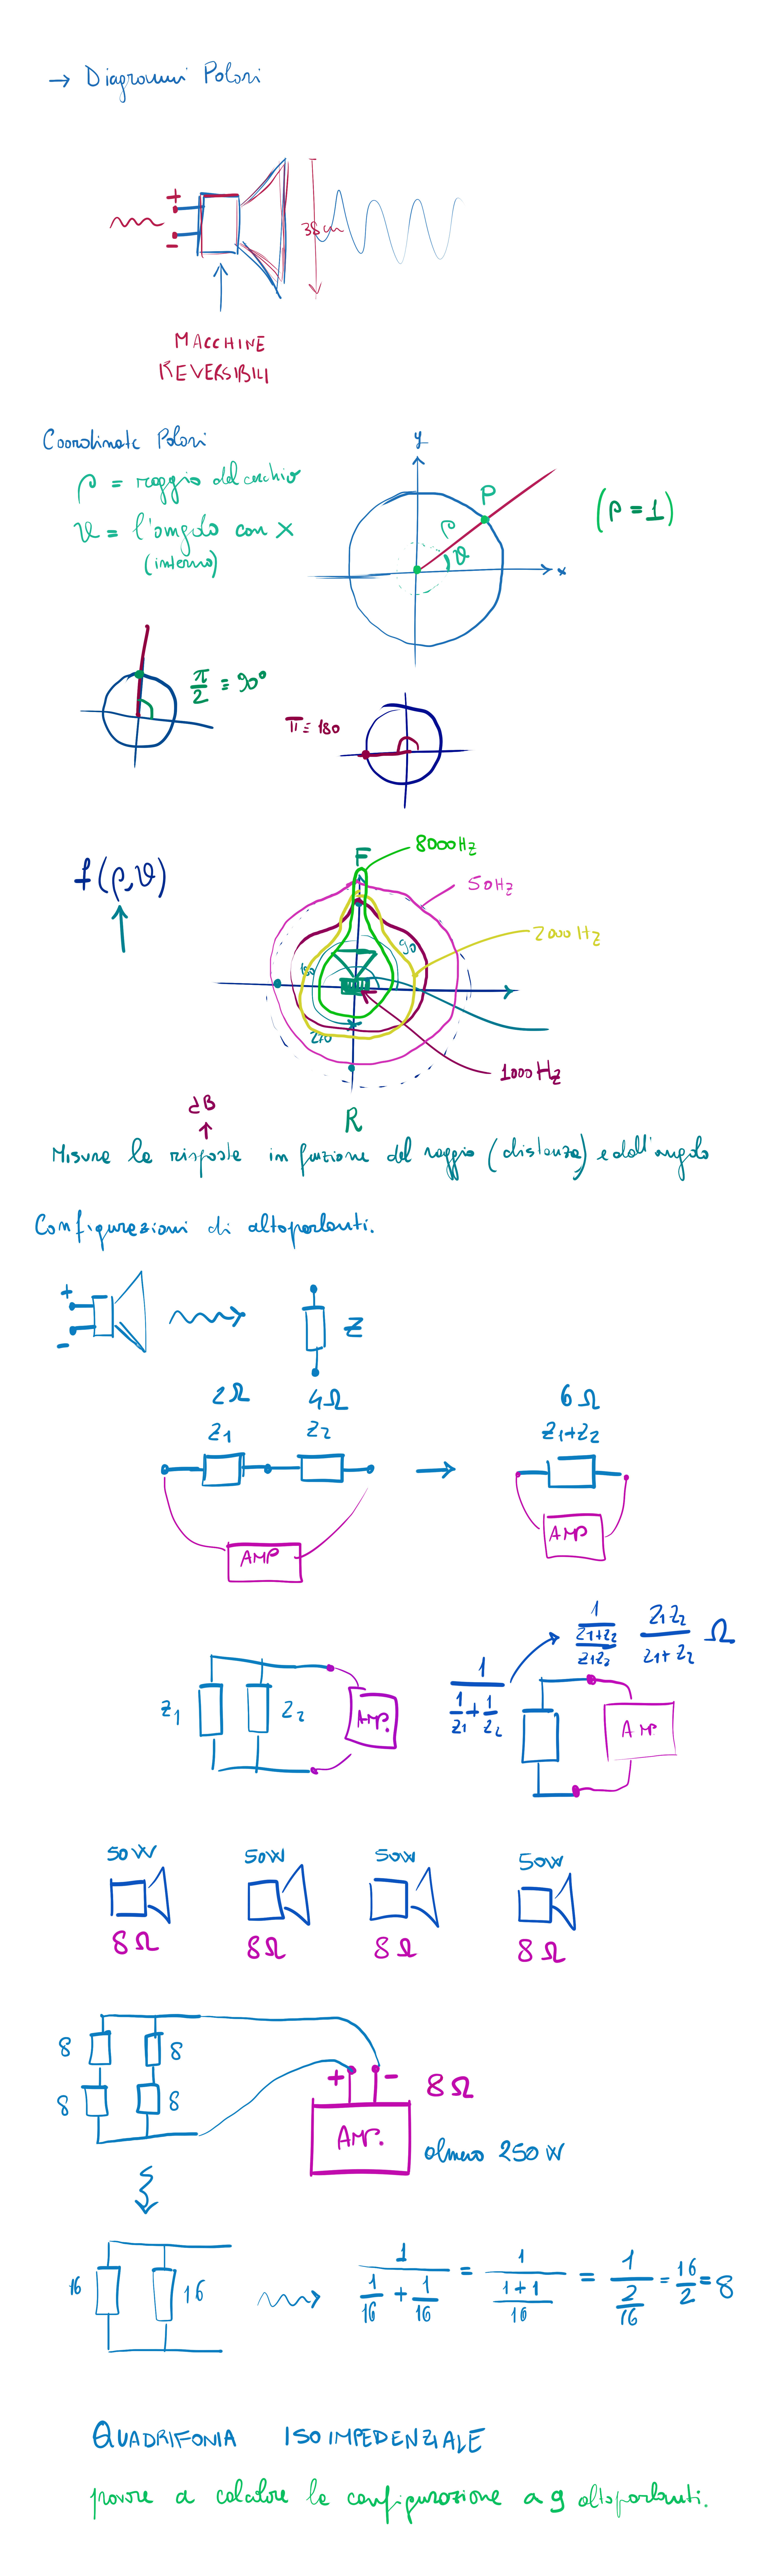 → Diagrammi Polari
+
-
38cm
MACCHINE
REVERSIBILI
Coordinate Polari
ρ = raggio del cerchio
ϑ = l'angolo con x
(interno)
y
P
ρ
ϑ
x
(ρ=1)
π/2 = 90°
π = 180
f(ρ,ϑ)
F
8000Hz
50Hz
2000Hz
90
180
270
1000Hz
R
dB
↑
Misura la risposta in funzione del raggio (distanza) e dell'angolo
Configurazioni di altoparlanti.
+
-
Z
2Ω 4Ω 6Ω
Z1 Z2 Z1+Z2
→
AMP AMP
1/(1/Z1 + 1/Z2)
1/((Z1+Z2)/(Z1Z2)) Z1Z2/(Z1+Z2) Ω
Z1 Z2 AMP.
AMP
50W 50W 50W 50W
8Ω 8Ω 8Ω 8Ω
8 8
8 8
+ - 8Ω
AMP.
almeno 250W
16 16
1/(1/16 + 1/16) = 1/((1+1)/16) = 1/(2/16) = 16/2 = 8
QUADRIFONIA ISOIMPEDENZIALE
provare a calcolare la configurazione a 9 altoparlanti.